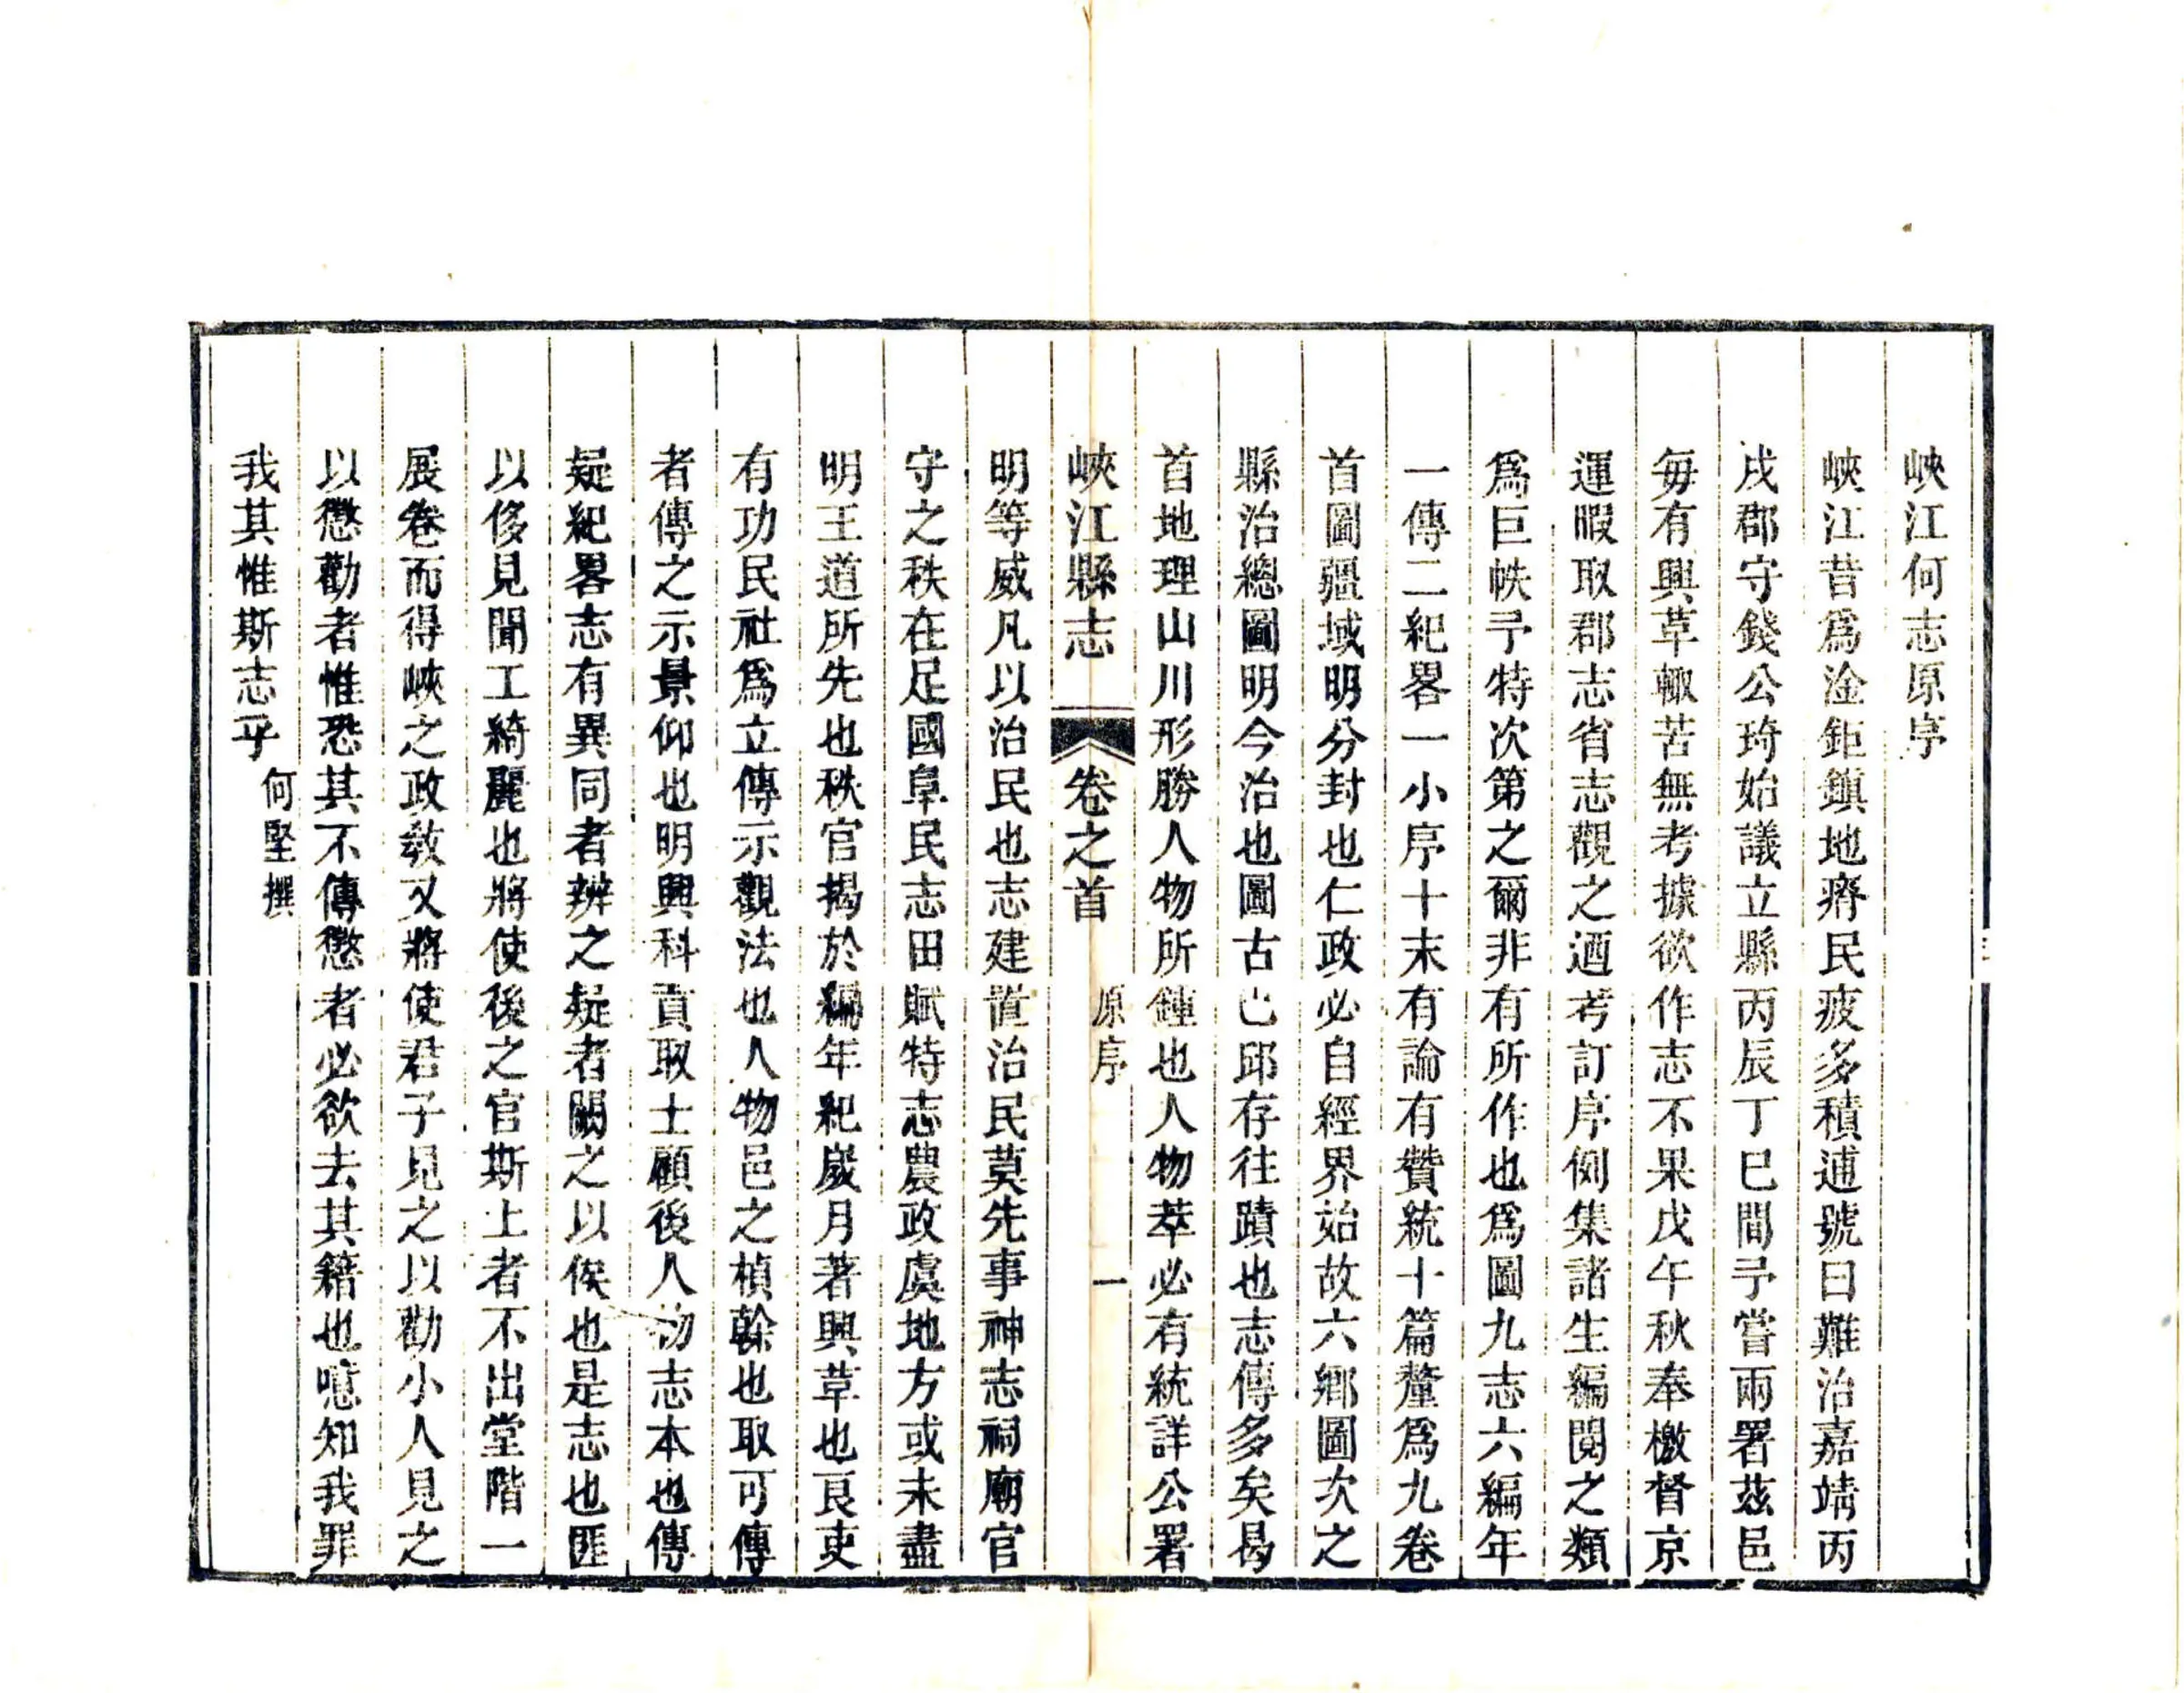 峽江何志原序
峽江昔爲淦鉅鎮地瘠民疲多積逋號曰難治嘉靖丙
戌郡守錢公琦始議立縣丙辰丁巳間予嘗兩署茲邑
每有興革輙苦無考據欲作志不果戊午秋奉檄督京
運暇取郡志省志觀之迺考訂序例集諸生編閱之類
爲巨帙予特次第之爾非有所作也爲圖九志六編年
一傳二紀畧一小序十末有論有贊統十篇釐爲九卷
首圖疆域明分封也仁政必自經界始故六鄉圖次之
縣治總圖明今治也圖古巴邱存往蹟也志傳多矣曷
首地理山川形勝人物所鍾也人物萃必有統詳公署
峽江縣志 卷之首 原序 一
明等威凡以治民也志建置治民莫先事神志祠廟官
守之秩在足國阜民志田賦特志農政虞地方或未盡
明王道所先也秩官揭於編年紀歲月著興革也良吏
有功民社爲立傳示觀法也人物邑之楨榦也取可傳
者傳之示景仰也明興科貢取士顧後人物志本也傳
疑紀畧志有異同者辨之疑者闕之以俟也是志也匪
以侈見聞工綺麗也將使後之官斯土者不出堂階一
展卷而得峽之政教又將使君子見之以勸小人見之
以懲勸者惟恐其不傳懲者必欲去其籍也噫知我罪
我其惟斯志乎
何堅撰